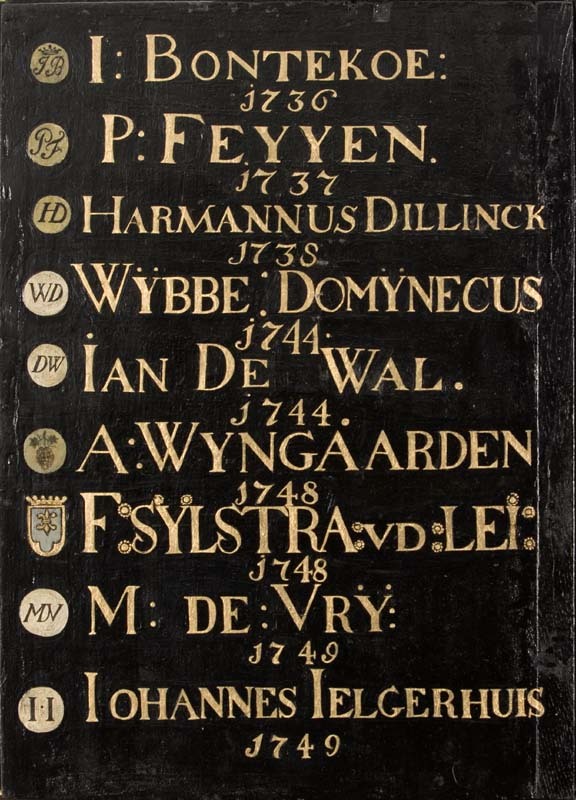 IB I: BONTEKOE:
1736
PF P: FEYYEN.
1737
HD HARMANNUS DILLINCK
1738
WD WŸBBE: DOMŸNECUS
1744
DW IAN DE WAL.
1744.
A: WYNGAARDEN
1748
F: SŸLSTRA: VD: LEI:
1748
MDV M: DE: VRŸ:
1749
I·I IOHANNES IELGERHUIS
1749